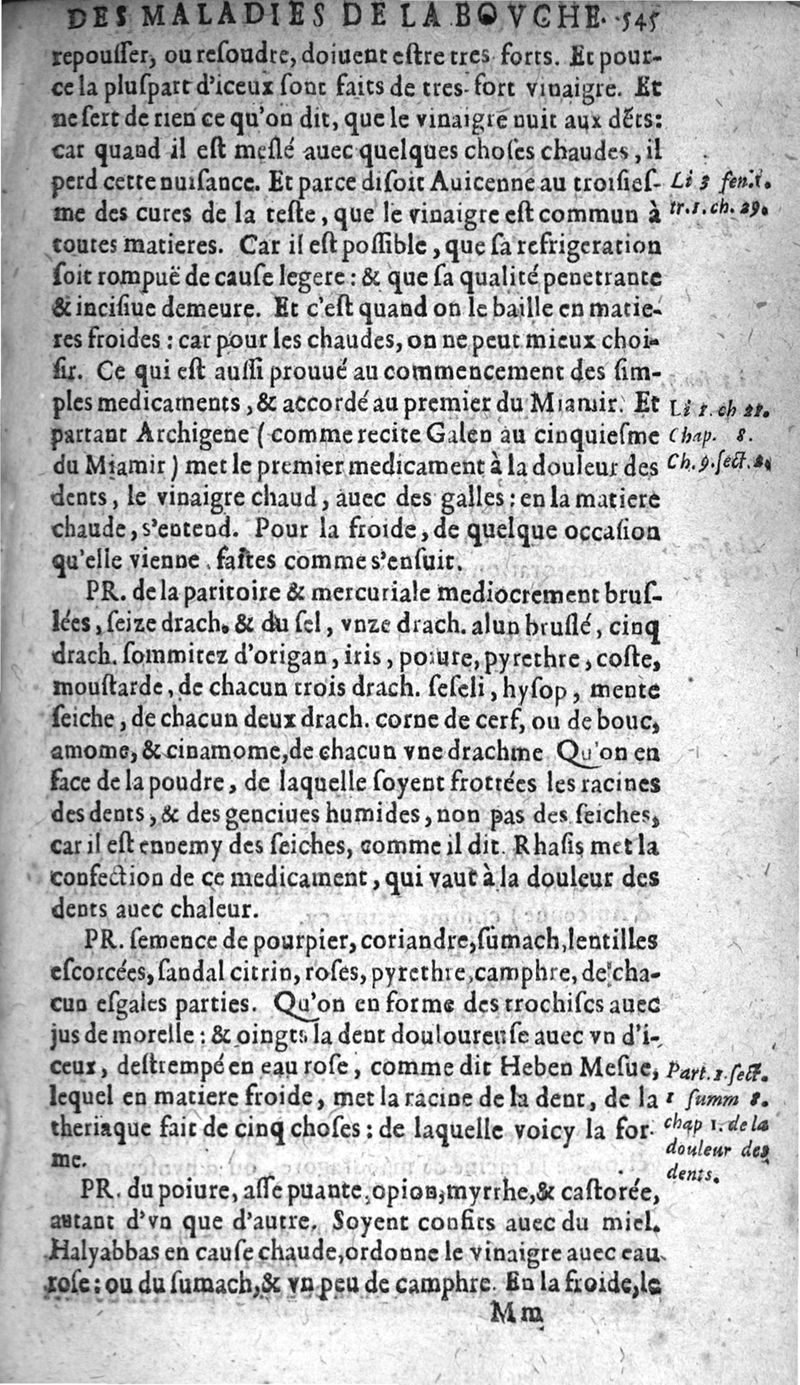 DES MALADIES DE LA BOVCHE. 545
repousser, ou resoudre, doiuent estre tres forts. Et pour-
ce la pluspart d'iceux sont faits de tres-fort vinaigre. Et
ne sert de rien ce qu'on dit, que le vinaigre nuit aux dẽts:
car quand il est meslé auec quelques choses chaudes, il
perd cette nuisance. Et parce disoit Auicenne au troisies-
Li 3 fen.1.
me des cures de la teste, que le vinaigre est commun à
tr.1.ch.29.
toutes matieres. Car il est possible, que sa refrigeration
soit rompuë de cause legere: & que sa qualité penetrante
& incisiue demeure. Et c'est quand on le baille en matie-
res froides: car pour les chaudes, on ne peut mieux choi-
sir. Ce qui est aussi prouué au commencement des sim-
ples medicaments, & accordé au premier du Miamir. Et
Li 1. ch 21.
partant Archigene (comme recite Galen au cinquiesme
Chap. 8.
du Miamir) met le premier medicament à la douleur des
Ch.9.sect.
dents, le vinaigre chaud, auec des galles: en la matiere
chaude, s'entend. Pour la froide, de quelque occasion
qu'elle vienne, faites comme s'ensuit.
PR. de la paritoire & mercuriale mediocrement brus-
lées, seize drach. & du sel, vnze drach. alun bruslé, cinq
drach. sommitez d'origan, iris, poiure, pyrethre, coste,
moustarde, de chacun trois drach. seseli, hysop, mente
seiche, de chacun deux drach. corne de cerf, ou de bouc,
amome, & cinamome, de chacun vne drachme Qu'on en
face de la poudre, de laquelle soyent frottées les racines
des dents, & des genciues humides, non pas des seiches,
car il est ennemy des seiches, comme il dit. Rhasis met la
confection de ce medicament, qui vaut à la douleur des
dents auec chaleur.
PR. semence de pourpier, coriandre, sumach, lentilles
escorcées, sandal citrin, roses, pyrethre, camphre, de cha-
cun esgales parties. Qu'on en forme des trochisces auec
jus de morelle: & oingts la dent douloureuse auec vn d'i-
ceux, destrempé en eau rose, comme dit Heben Mesue,
Part.1.sect.
lequel en matiere froide, met la racine de la dent, de la
1 summ 8.
theriaque fait de cinq choses: de laquelle voicy la for-
chap 1. de la
me.
douleur des
dents.
PR. du poiure, asse puante, opion, myrrhe, & castorée,
autant d'vn que d'autre. Soyent confits auec du miel.
Halyabbas en cause chaude, ordonne le vinaigre auec eau
rose: ou du sumach, & vn peu de camphre. En la froide, le
Mm